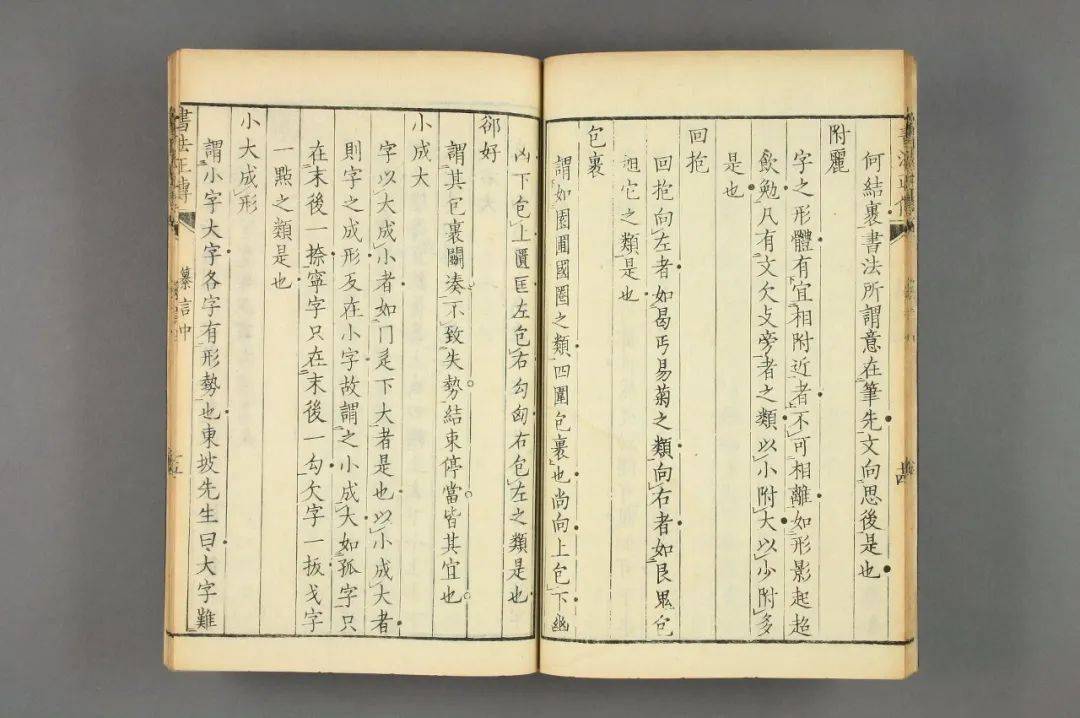 何結裹書法所謂意在筆先文向思後是也
附麗
字之形體有宜相附近者不可相離如形影起超
飲勉凡有文欠攴旁者之類以小附大以少附多
是也
回抱
回抱向左者如曷丐易菊之類向右者如艮鬼包
旭它之類是也
包裹
謂如園圃國圈之類四圍包裹也尚向上包下幽
凶下包上匱匡左包右勾匈右包左之類是也
郤好
謂其包裹鬭湊不致失勢結束停當皆其宜也
小成大
字以大成小者如門辵下大者是也以小成大者
則字之成形及在小字故謂之小成大如孤字只
在末後一捺寧字只在末後一勾欠字一拔戈字
一點之類是也
小大成形
謂小字大字各字有形勢也東坡先生曰大字難
書法正傳
纂言中
書法正傳